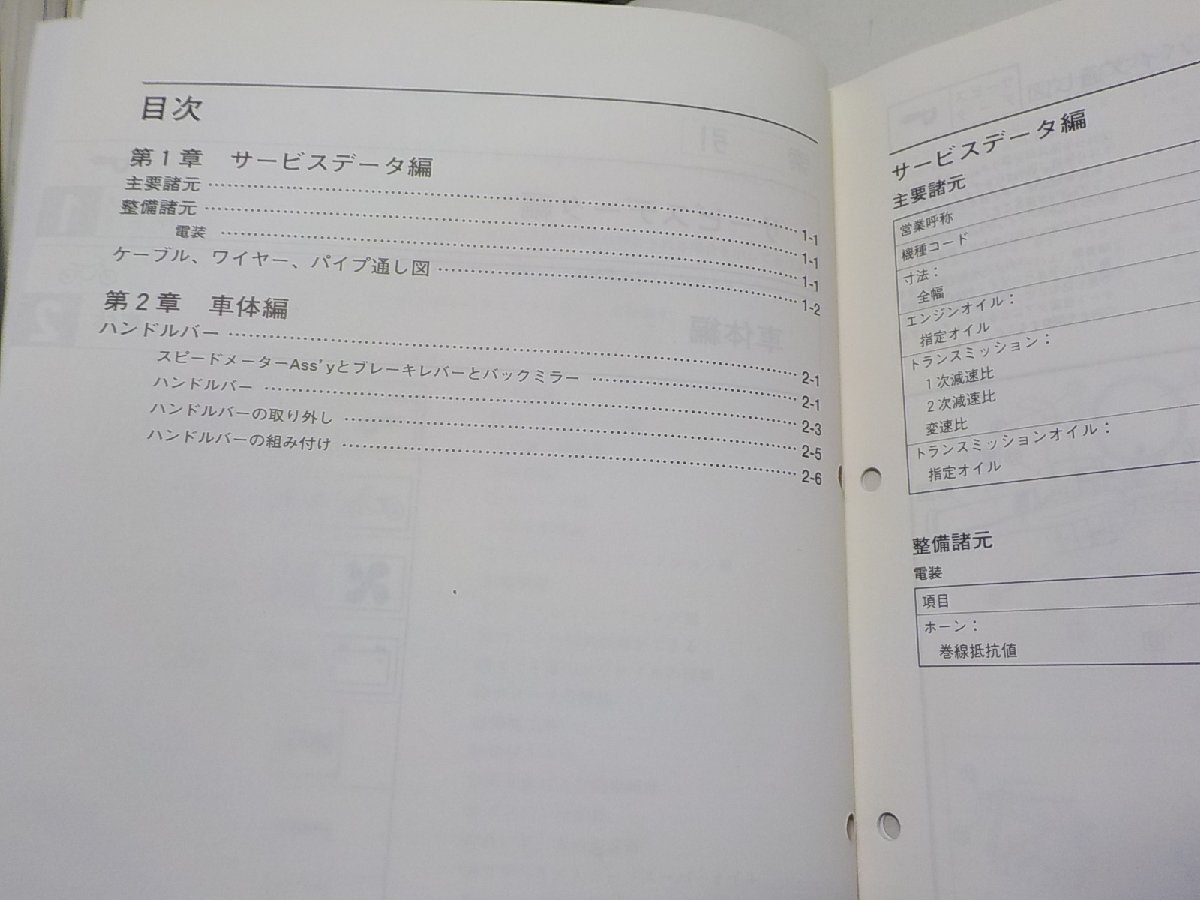 目次
第1章 サービスデータ編
主要諸元 1-1
整備諸元 1-1
電装 1-1
ケーブル、ワイヤー、パイプ通し図 1-2
第2章 車体編
ハンドルバー 2-1
スピードメーターAss'yとブレーキレバーとバックミラー 2-1
ハンドルバー 2-3
ハンドルバーの取り外し 2-5
ハンドルバーの組み付け 2-6
サービスデータ編
主要諸元
営業呼称
機種コード
寸法：
全幅
エンジンオイル：
指定オイル
トランスミッション：
1次減速比
2次減速比
変速比
トランスミッションオイル：
指定オイル
整備諸元
電装
項目
ホーン：
巻線抵抗値